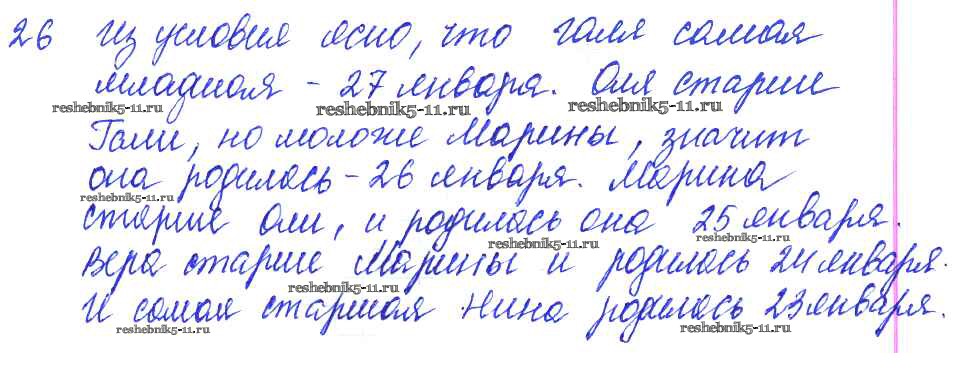 26 Из условия ясно, что Галя самая
младшая - 27 января. Оля старше
reshebnik5-11.ru reshebnik5-11.ru reshebnik5-11.ru
Гали, но моложе Марины, значит
она родилась - 26 января. Марина
reshebnik5-11.ru
старше Оли, и родилась она 25 января.
reshebnik5-11.ru reshebnik5-11.ru
Вера старше Марины и родилась 24 января.
reshebnik5-11.ru
И самая старшая Нина родилась 23 января.
reshebnik5-11.ru reshebnik5-11.ru